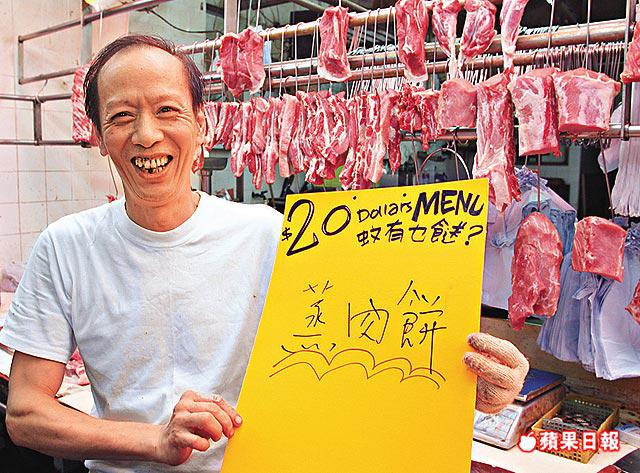 $20 Dollars MENU
蚊有乜餸?
蒸肉餅
蘋果日報